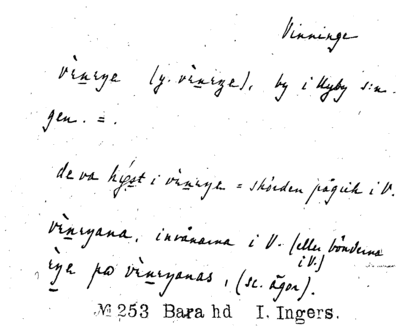 Vinninge
vìnɩŋe (y. vìnɩŋe), by i Kyby s:n.
gen. = .
de va hỳst i vìnɩŋe = skörden pågick i V.
vìnɩŋana, invånarna i V. (eller bönderna i V.)
pɑ vìnɩŋanas, (sc. ägor).
№ 253 Bara hd I. Ingers.